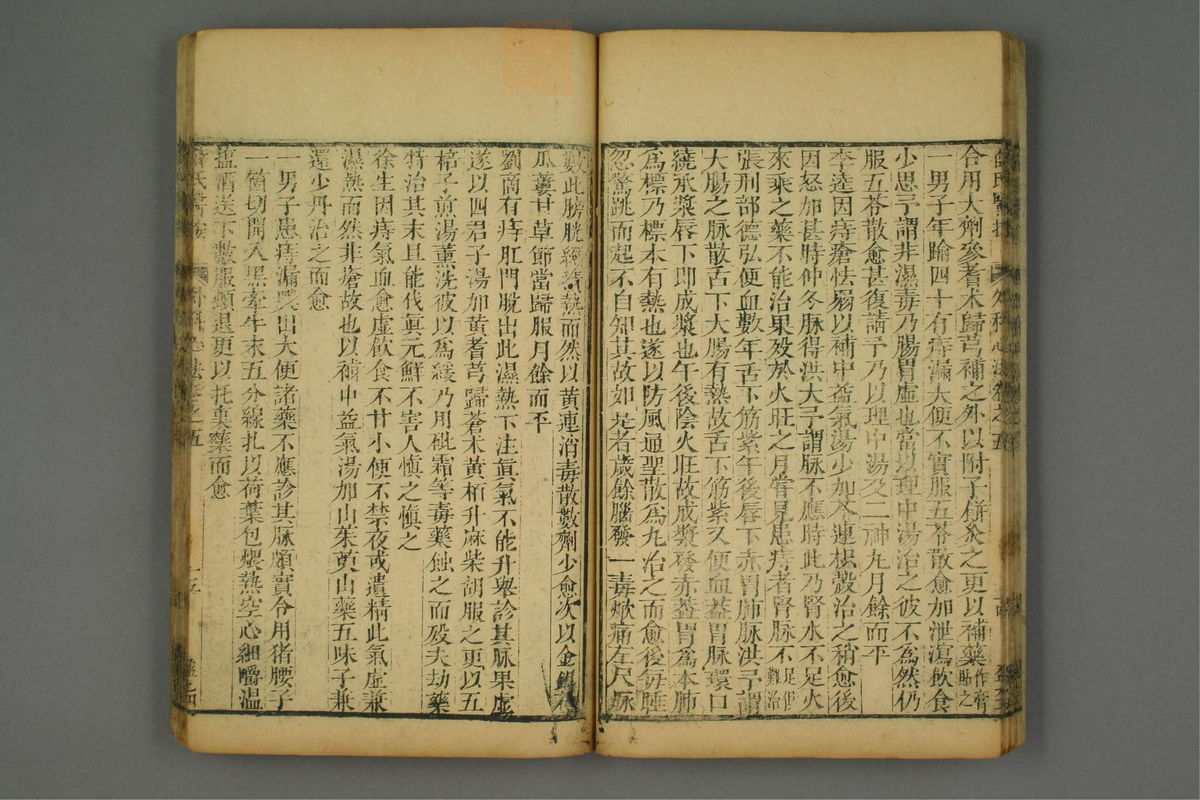 薛氏醫按 外科心法卷之五
合用大劑參耆术歸芎補之外以附子餅灸之更以補藥作膏貼之
一男子年踰四十有痔漏大便不實服五苓散愈加泄瀉飲食
少思予謂非濕毒乃腸胃虛也當以理中湯治之彼不爲然仍
服五苓散愈甚復請予乃以理中湯及二神丸月餘而平
李逵因痔瘡怯弱以補中益氣湯少加 連枳殼治之稍愈後
因怒加甚時仲冬脉得洪大予謂脉不應時此乃腎水不足火
來乘之藥不能治果殁於火旺之月嘗見患痔者腎脉不足俱難治
張刑部德弘便血數年舌下筋紫午後唇下赤胃肺脉洪予謂
大腸之脉散舌下大腸有熱故舌下筋紫又便血蓋胃脉環口
繞承漿唇下即成漿也午後陰火旺故成漿發赤蓋胃爲本肺
爲標乃標本有熱也遂以防風通聖散爲丸治之而愈後每睡
忽驚跳而起不自知其故如是者歲餘腦發一毒焮痛左尺脉
數此膀胱經積熱而然以黃連消毒散數劑少愈次以金銀花
瓜蔞甘草節當歸服月餘而平
劉商有痔肛門脫出此濕熱下注眞氣不能升舉診其脉果虛
遂以四君子湯加黃耆芎歸蒼术黃栢升麻柴胡服之更以五
棓子煎湯薰洗彼以爲緩乃用砒霜等毒藥蝕之而殁夫劫藥
特治其末且能伐眞元鮮不害人愼之愼之
徐生因痔氣血愈虛飲食不甘小便不禁夜或遺精此氣虛兼
濕熱而然非瘡故也以補中益氣湯加山茱萸山藥五味子兼
還少丹治之而愈
一男子患痔漏糞出大便諸藥不應診其脉頗實令用猪腰子
一箇切開入黑牽牛末五分線扎以荷葉包煨熱空心細嚼溫
鹽酒送下數服頓退更以托裏藥而愈
薛氏醫按 外科心法卷之五